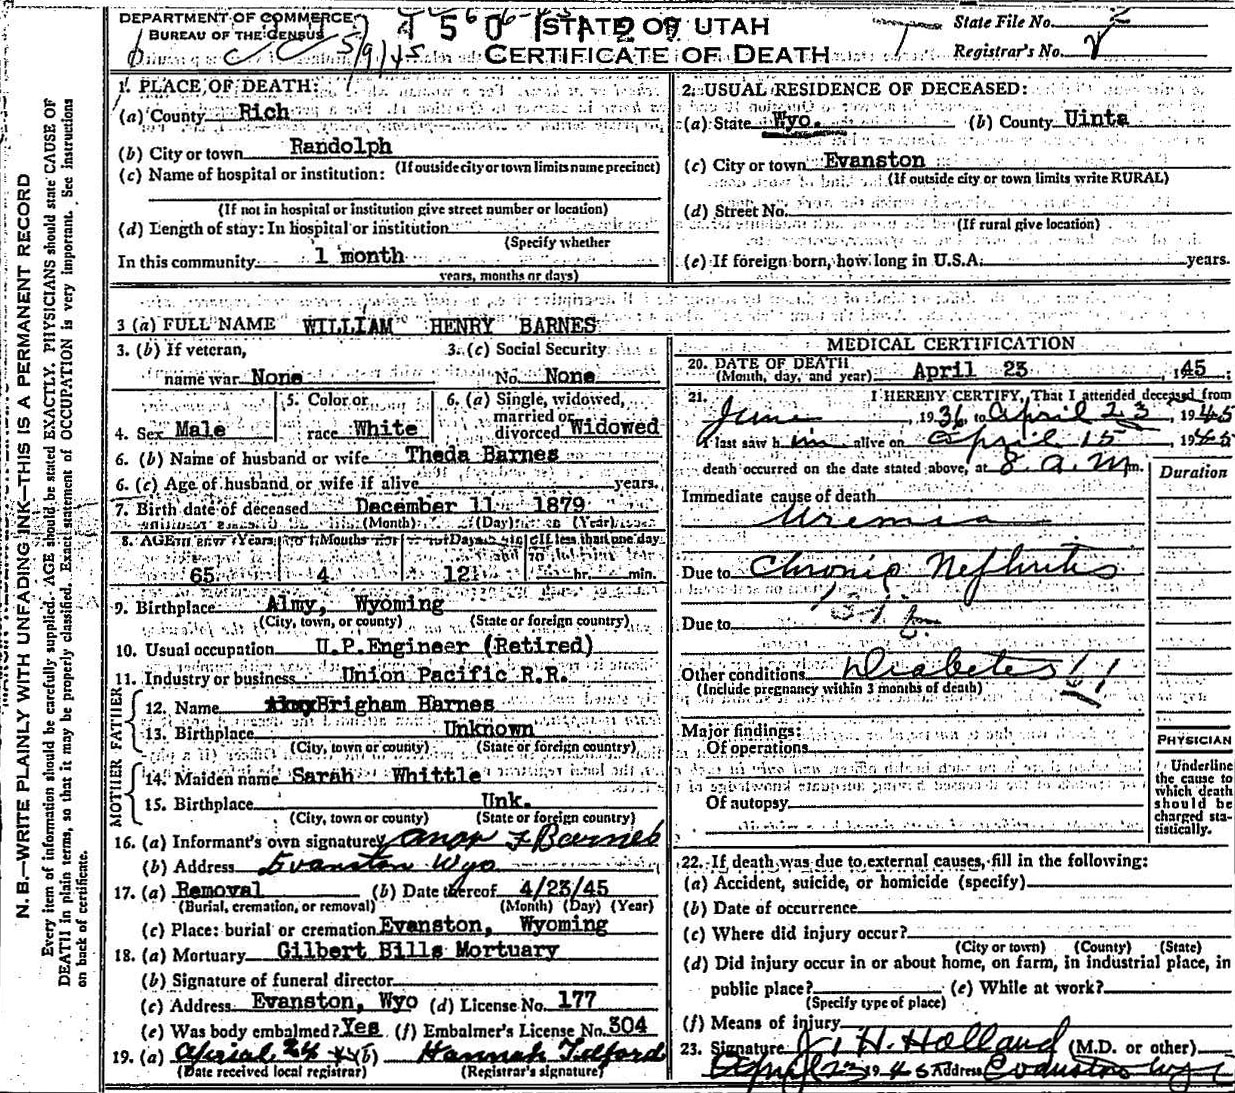 DEPARTMENT OF COMMERCE
BUREAU OF THE CENSUS
5/9/45
STATE OF UTAH
CERTIFICATE OF DEATH
State File No.
Registrar's No.
N. B.—WRITE PLAINLY WITH UNFADING INK—THIS IS A PERMANENT RECORD
Every item of information should be carefully supplied. AGE should be stated EXACTLY. PHYSICIANS should state CAUSE OF
DEATH in plain terms, so that it may be properly classified. Exact statement of OCCUPATION is very important. See instructions
on back of certificate.
1. PLACE OF DEATH:
(a) County Rich
(b) City or town Randolph
(If outside city or town limits name precinct)
(c) Name of hospital or institution:
(If not in hospital or institution give street number or location)
(d) Length of stay: In hospital or institution
(Specify whether
In this community 1 month
years, months or days)
2. USUAL RESIDENCE OF DECEASED:
(a) State Wyo. (b) County Uinta
(c) City or town Evanston
(If outside city or town limits write RURAL)
(d) Street No.
(If rural give location)
(e) If foreign born, how long in U.S.A. years.
3 (a) FULL NAME WILLIAM HENRY BARNES
3. (b) If veteran,
name war None
3. (c) Social Security
No. None
4. Sex Male
5. Color or
race White
6. (a) Single, widowed,
married or
divorced Widowed
6. (b) Name of husband or wife Theda Barnes
6. (c) Age of husband or wife if alive years.
7. Birth date of deceased December 11 1879
(Month) (Day) (Year)
8. AGE Years Months Days If less than one day
65 4 12 hr. min.
9. Birthplace Almy, Wyoming
(City, town, or county) (State or foreign country)
10. Usual occupation U.P.Engineer (Retired)
11. Industry or business Union Pacific R.R.
FATHER
12. Name Brigham Barnes
13. Birthplace Unknown
(City, town or county) (State or foreign country)
MOTHER
14. Maiden name Sarah Whittle
15. Birthplace Unk.
(City, town or county) (State or foreign country)
16. (a) Informant's own signature F Barnes
(b) Address Evanston Wyo
17. (a) Removal (b) Date thereof 4/23/45
(Burial, cremation, or removal) (Month) (Day) (Year)
(c) Place: burial or cremation Evanston, Wyoming
18. (a) Mortuary Gilbert Bills Mortuary
(b) Signature of funeral director
(c) Address Evanston, Wyo (d) License No. 177
(e) Was body embalmed? Yes (f) Embalmer's License No. 304
19. (a) April 24 (b) Hannah Telford
(Date received local registrar) (Registrar's signature)
MEDICAL CERTIFICATION
20. DATE OF DEATH
(Month, day, and year) April 23, 1945
21. I HEREBY CERTIFY, That I attended deceased from
June, 1936 to April 23, 1945
I last saw him alive on April 15, 1945
death occurred on the date stated above, at 8. a. M m.
Duration
Immediate cause of death
Uremia
Due to Chronic Nephritis
131
Due to
Other conditions Diabetes 61
(Include pregnancy within 3 months of death)
Major findings:
Of operations
Of autopsy
PHYSICIAN
Underline
the cause to
which death
should be
charged sta-
tistically.
22. If death was due to external causes, fill in the following:
(a) Accident, suicide, or homicide (specify)
(b) Date of occurrence
(c) Where did injury occur?
(City or town) (County) (State)
(d) Did injury occur in or about home, on farm, in industrial place, in
public place? (e) While at work?
(Specify type of place)
(f) Means of injury
23. Signature J H. Holland (M.D. or other)
April 23 1945 Address Evanston Wyo